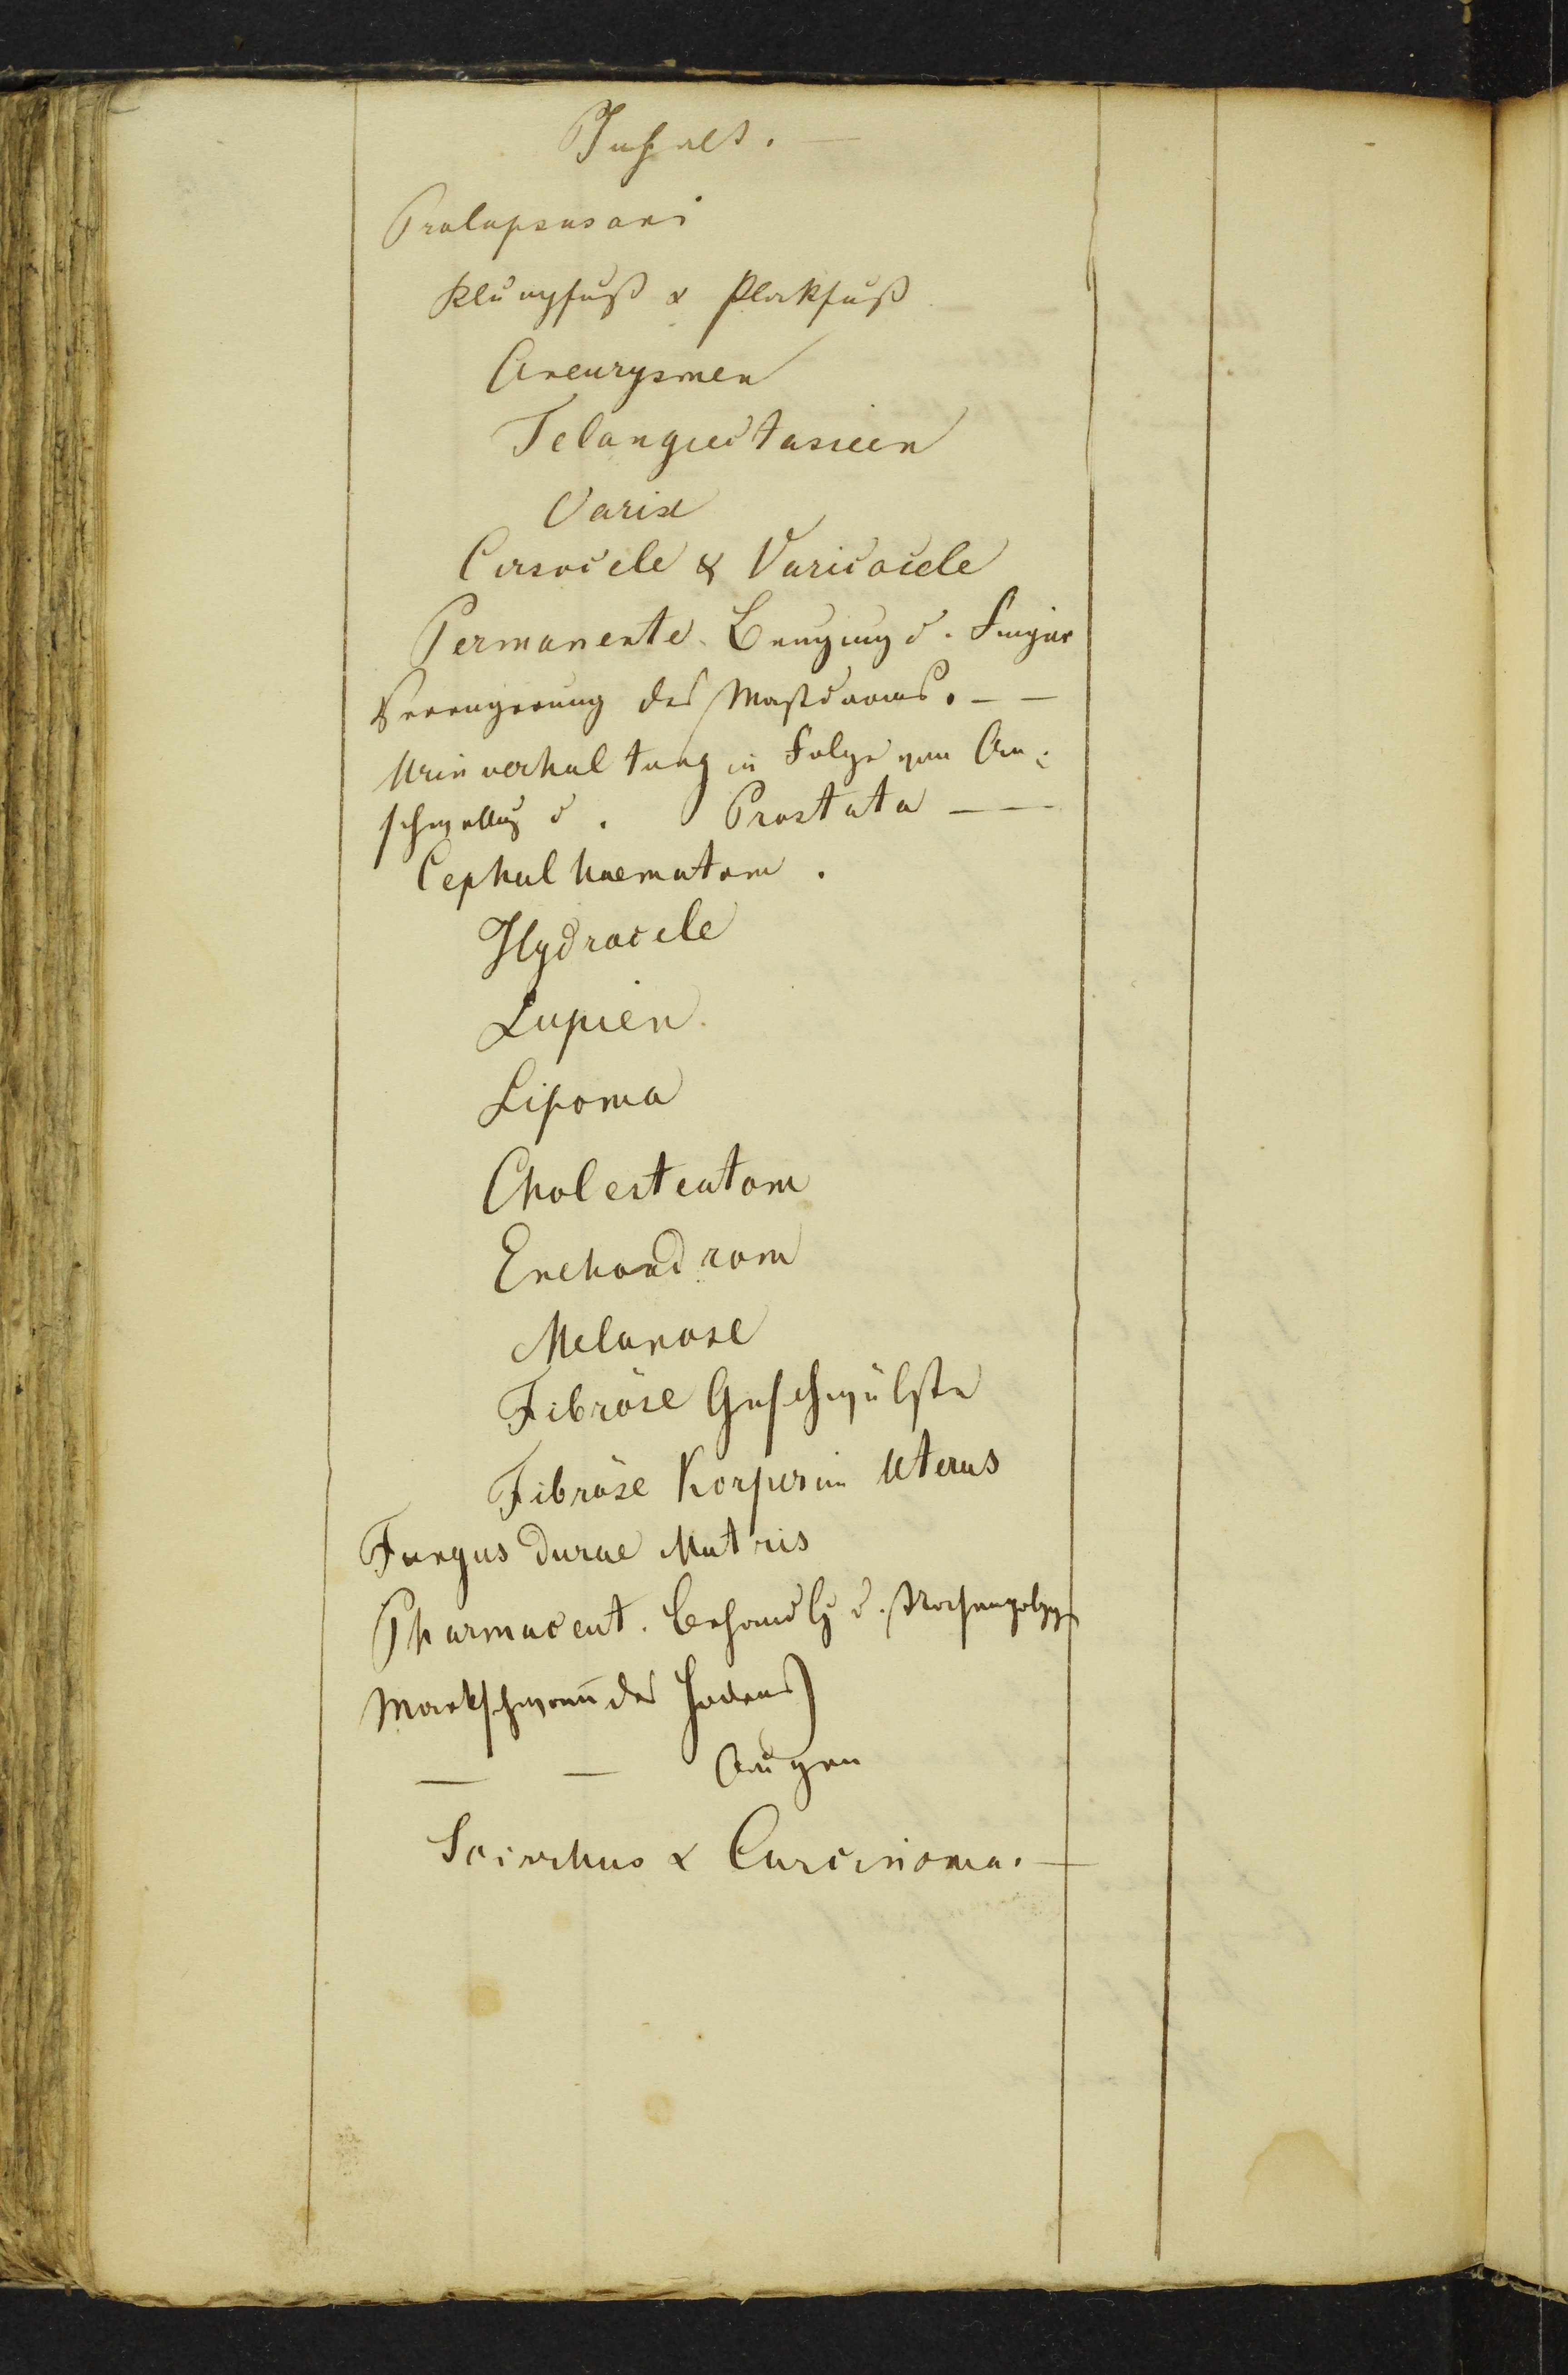 Inhalt. —
Prolapsus ani
Klumpfuß & Plattfuß
Aneurysmen
Telangiectasieen
Varix
Cirsocele & Varicocele
Permanente Beugung d. Finger
Verengerung des Mastdarms. — —
Urinverhaltung in Folge von An-
schwellg d. Prostata — —
Cephalhaematom.
Hydrocele
Lupien.
Lipoma
Cholesteatom
Enchondrom
Melanose
Fibröse Geschwülste
Fibröse Korper im Uterus
Fungus durae Matris
Pharmaceut. Behandlg d.
Markschwam̄ des Hodens)
— — Augen
Scirrhus & Carcinoma. —